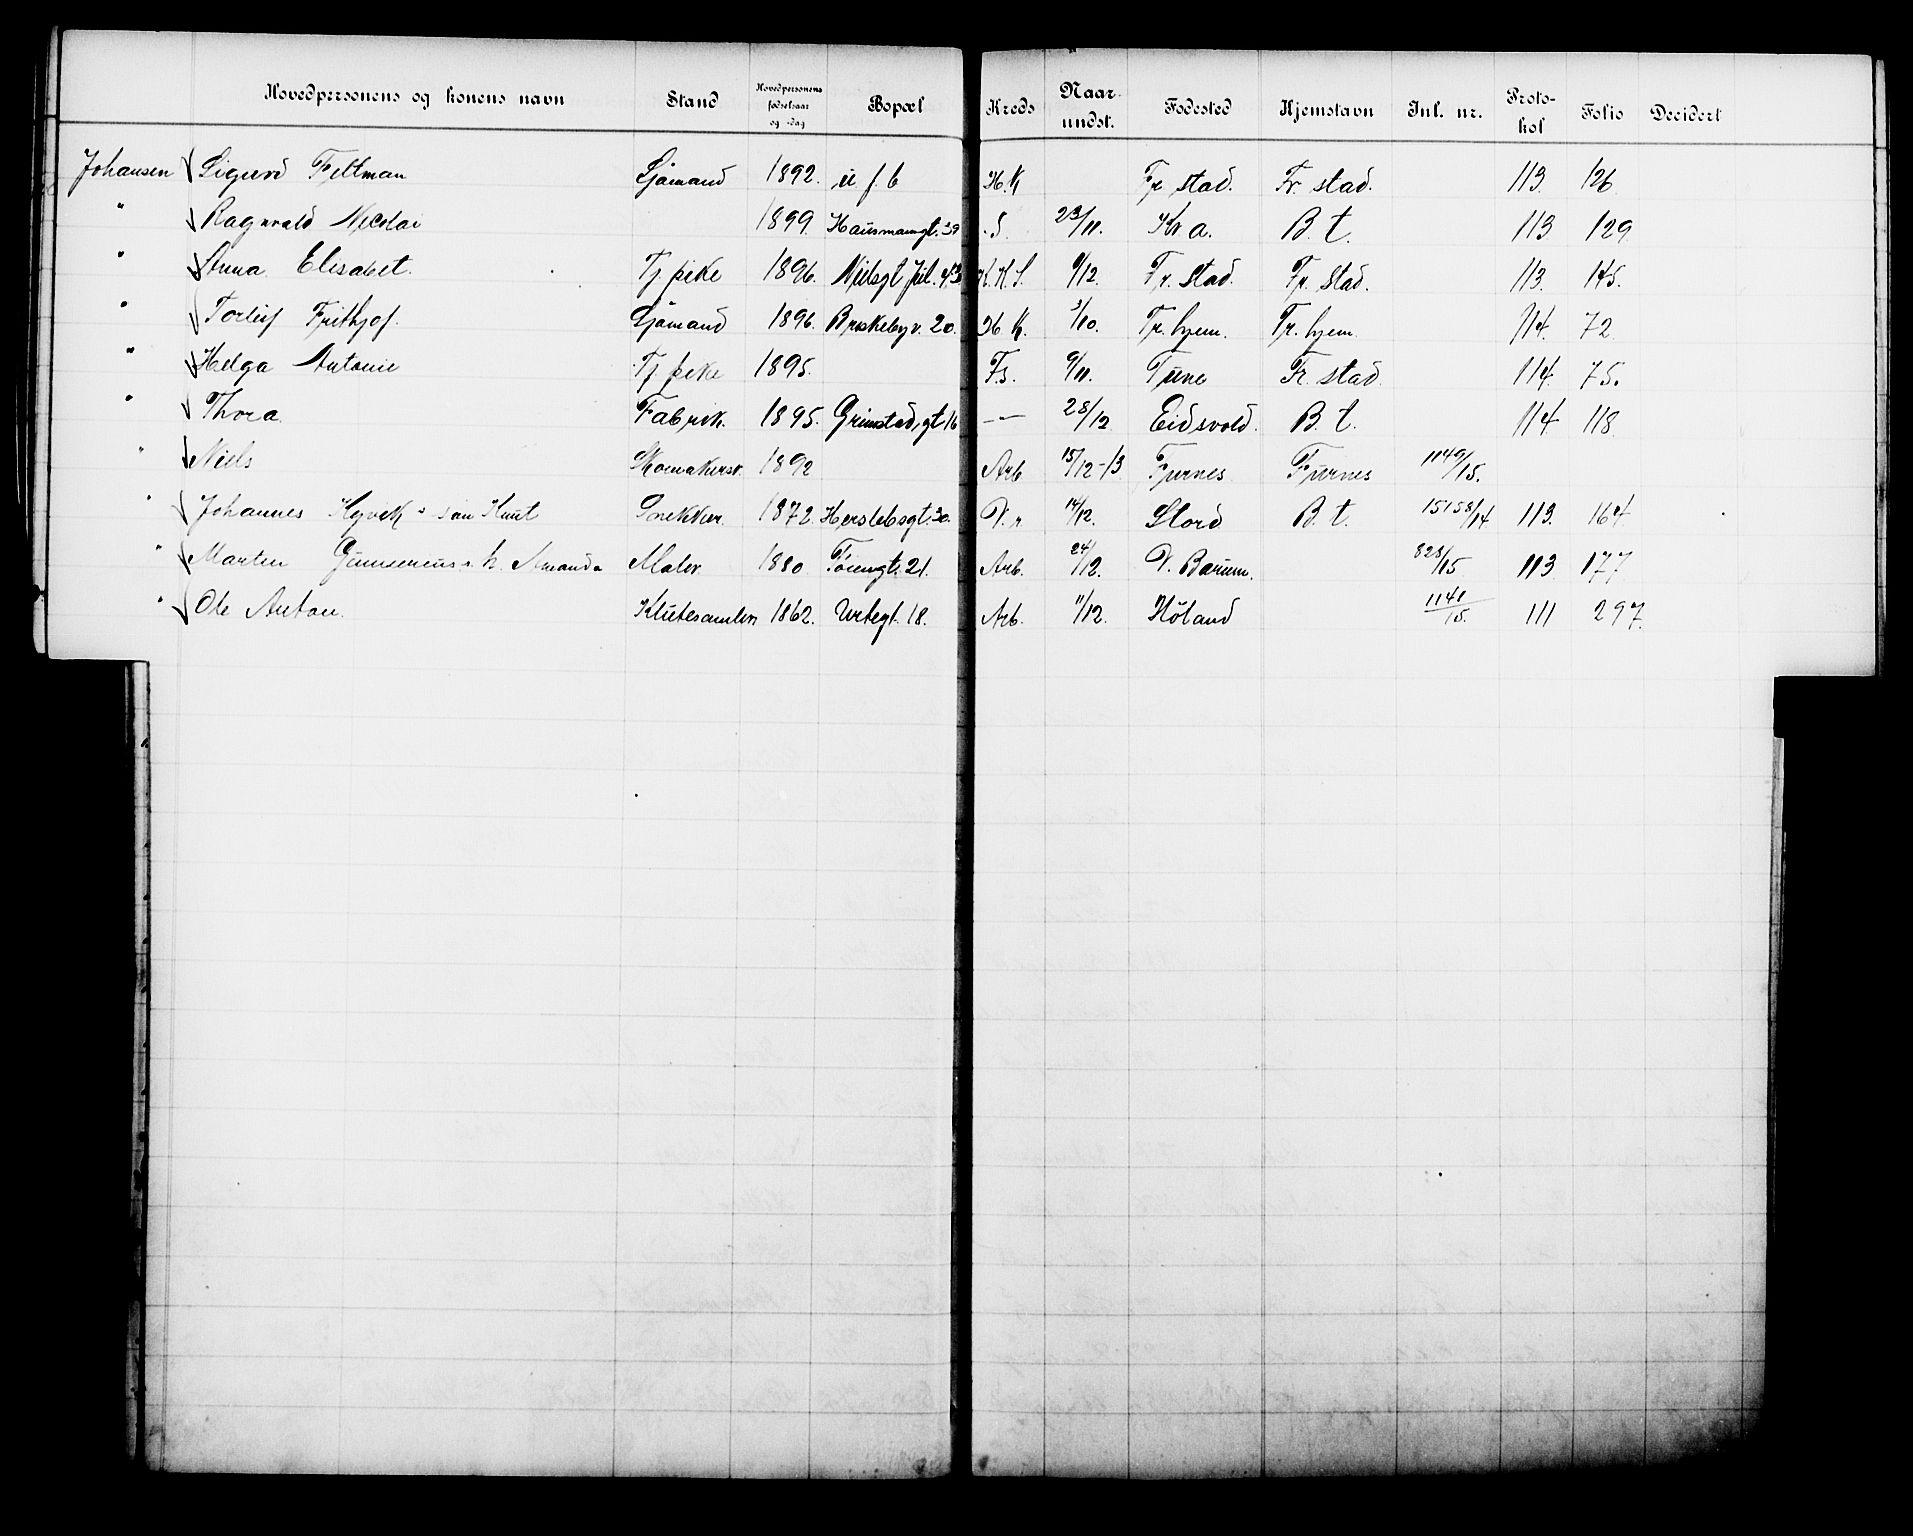 Hovedpersonens og konens navn Stand Hovedpersonens fødselsaar og -dag Bopæl Kreds Naar undst. Fødested Hjemstavn Inl. nr. Protokol Folio Decidert
Johansen Sigurd Feltman Sjømand 1892. u f. b H.K Fr stad. Fr. stad. 113. 126
" Ragnvald Nicolai 1899. Hausmansgt. 39 S. 23/11. Kr a. B. t. 113 129
" Anna Elisabet. Tj pike 1896. Nielsgt Jul. 43 K.K.S. 9/12. Fr. Stad. Fr. Stad. 113. 145.
" Torleif Frithjof. Sjømand 1896. Briskebyv. 20. H.K. 3/10. Tr. hjem. Tr. hjem. 114. 72
" Helga Antonie Tj pike 1895. Fs. 9/11. Tune Fr. stad. 114. 75.
" Thora Fabrik. 1895. Grimstadgt 16 — 28/12 Eidsvold. B. t. 114 118
" Niels Skomakersv. 1892 Arb 15/12-13 Furnes Furnes 1149/15.
" Johannes Kyvik s. søn Knut Snekker. 1872. Herslebsgt. 30. V. r 14/12. Stord B. t. 15158/14 113. 164
" Martin Gunnerius s. h. Amanda Maler 1880. Tøiengt. 21. Arb. 24/12. V. Bærum. 828/15 113 177
" Ole Anton. Klutesamler 1862. Urtegt. 18. Arb. 11/12. Høland 1141/15. 111 297.